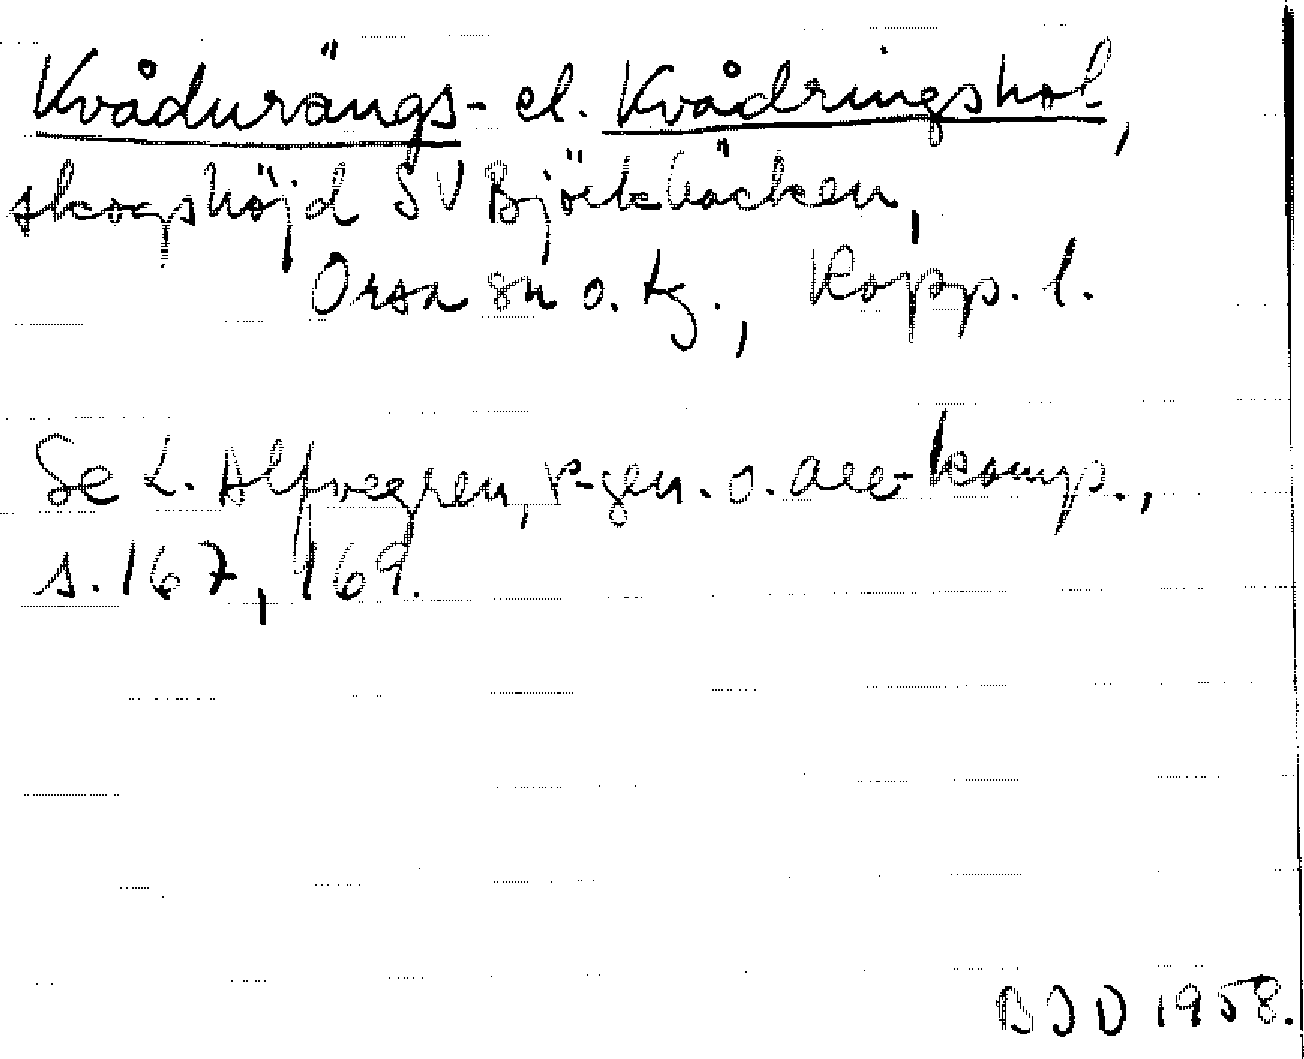 Kvådurängs- el. Kvådringshol,
skogshöjd SV Björkbäcken,
Orsa sn o. tg., Kopp. l.
Se L. Alfvegren, r-gen. o. ace-komp.,
s. 167, 169.
BJD 1958.